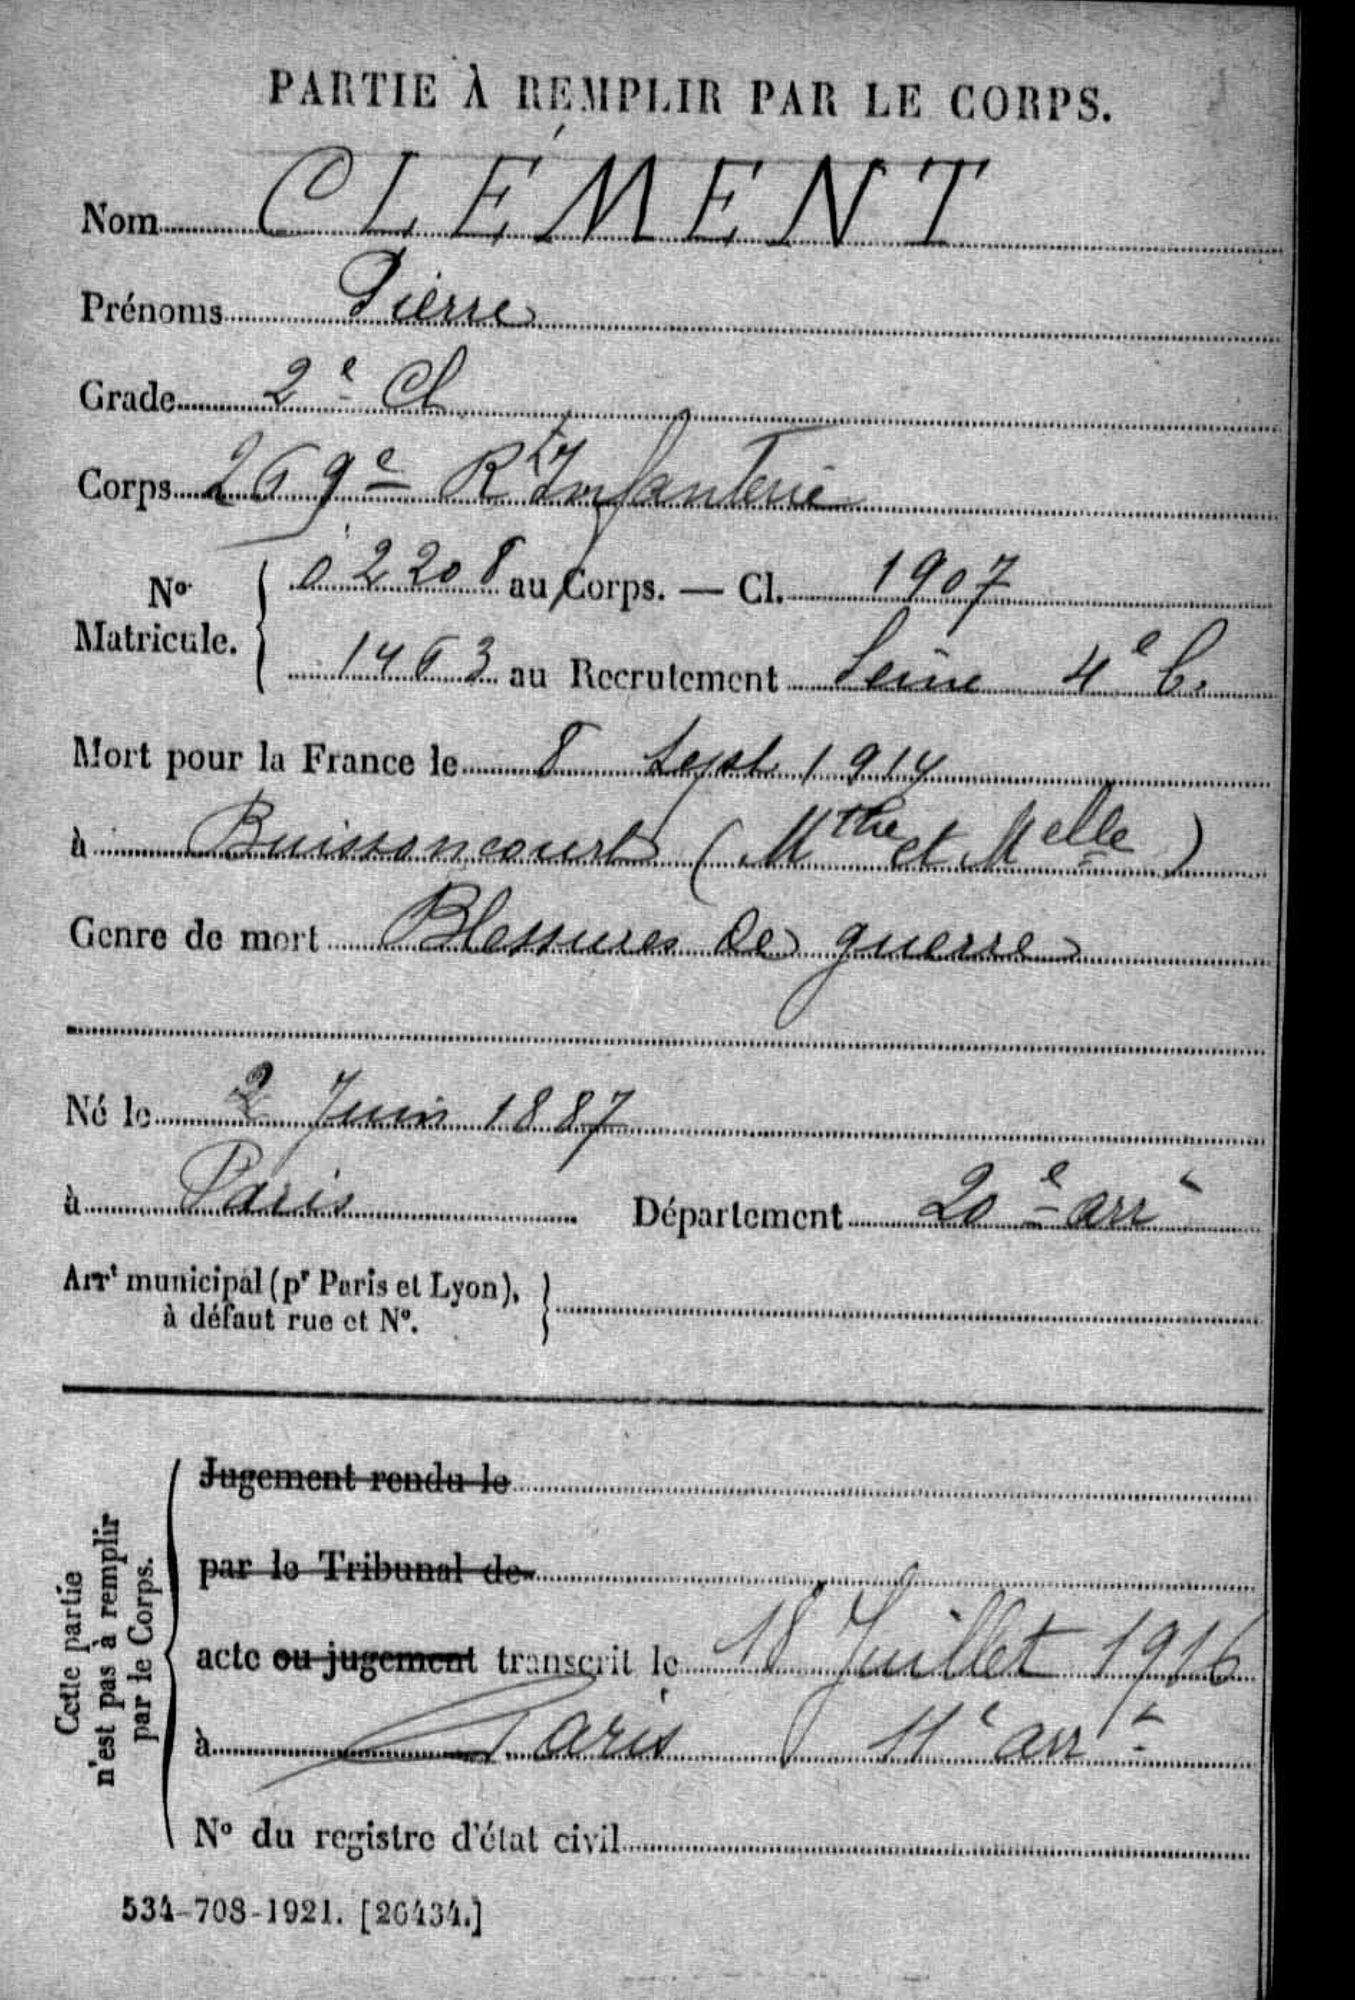 PARTIE À REMPLIR PAR LE CORPS.
Nom CLÉMENT
Prénoms Pierre
Grade 2e Cl
Corps 269e Rt Infanterie
No Matricule. 02208 au Corps. — Cl. 1907
1463 au Recrutement Seine 4e B.
Mort pour la France le 8 Sept 1914
à Buissoncourt (Mthe et Melle)
Genre de mort Blessures de guerre
Né le 2 Juin 1887
à Paris Département 20e arrt
Arrt municipal (pr Paris et Lyon),
à défaut rue et No.
Cette partie
n'est pas à remplir
par le Corps.
Jugement rendu le
par le Tribunal de
acte ou jugement transcrit le 18 Juillet 1916
à Paris 11e arrt
No du registre d'état civil
534-708-1921. [26434.]